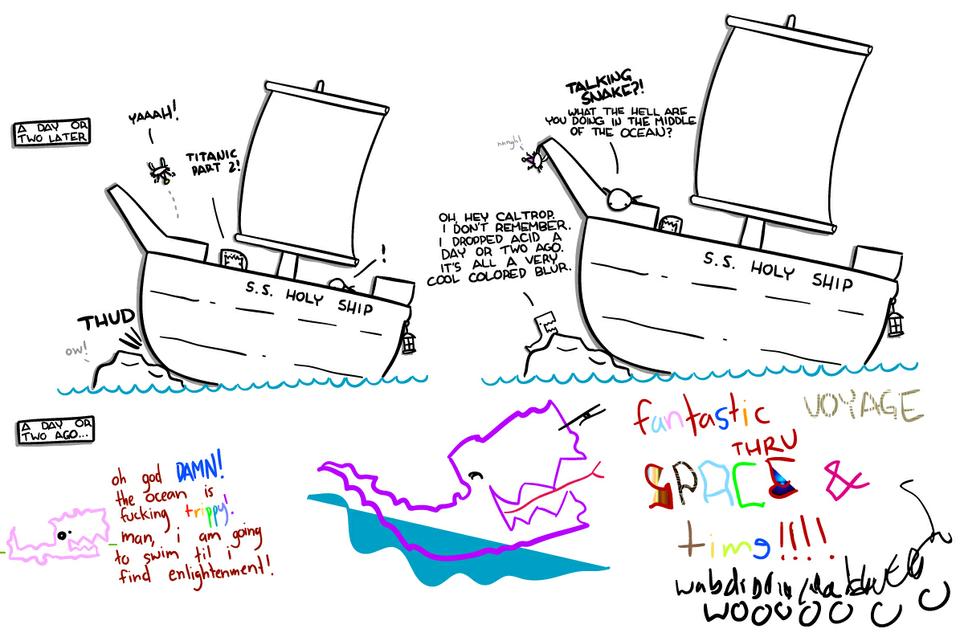 A DAY OR
TWO LATER
YAAAH!
TITANIC
PART 2!
!
S.S. HOLY SHIP
THUD
ow!
TALKING
SNAKE?!
WHAT THE HELL ARE
YOU DOING IN THE MIDDLE
OF THE OCEAN?
hnngh!
OH, HEY CALTROP.
I DON'T REMEMBER.
I DROPPED ACID A
DAY OR TWO AGO.
IT'S ALL A VERY
COOL COLORED BLUR.
S.S. HOLY SHIP
A DAY OR
TWO AGO...
oh god DAMN!
the ocean is
fucking trippy!
man, i am going
to swim til i
find enlightenment!
fantastic VOYAGE
THRU
SPACE &
time!!!!
WOOOOOOO